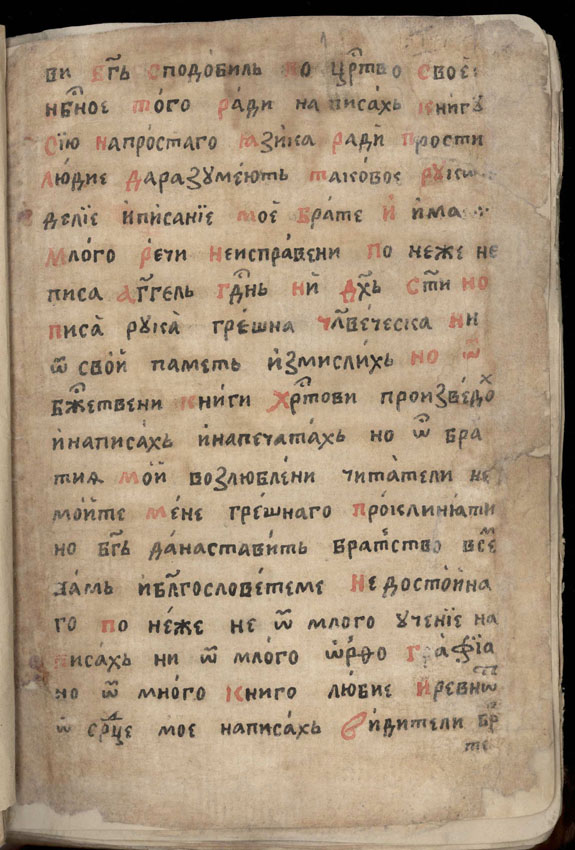 ви Бг҃ъ сподо́биль во цр҃тво Своє
нб҃ное то́го ра́ди на писа́хь книгꙋ
Сїю напро́стаго ꙗзи́ка ра́ди Прости
лю́дие Даразꙋме́ють тако́вое
де́лїе и҆пи́санїе мое҆ Бра́те И҆ и҆ма
Мло́го Ре́чи Неиспра́вени По неже не
писа А҆г҃гель гд҃нь Ни́ Дх҃ь Ст҃и но
писа̀ рꙋка̀ гре́шна члв҃е́ческа Ни
ѿ сво́й паметь и҆змисли́хь но ѿ
бж҃ествени кни́ги Хрт҃ови произве́дох
и҆написа́хь и҆напечата́хь но ѿ бра
тиѧ мо́й возлюбле́ни чита́тели не
мо́йте ме́не гре́шнаго про́клинюати
но бг҃ь да́наставить братство все́м
ва́мь и҆бл҃гослове́теме Не досто́йна
го По не́же не ѿ млого ꙋче́нїе на
писа́хь ни ѿ мло́го ѡ҆рѳо Гра́фїа
но ѿ мно́го книго лю́бие И҆ ревност
ѿ ср҃дце мое написа́хь Ви́дители бр҃
те